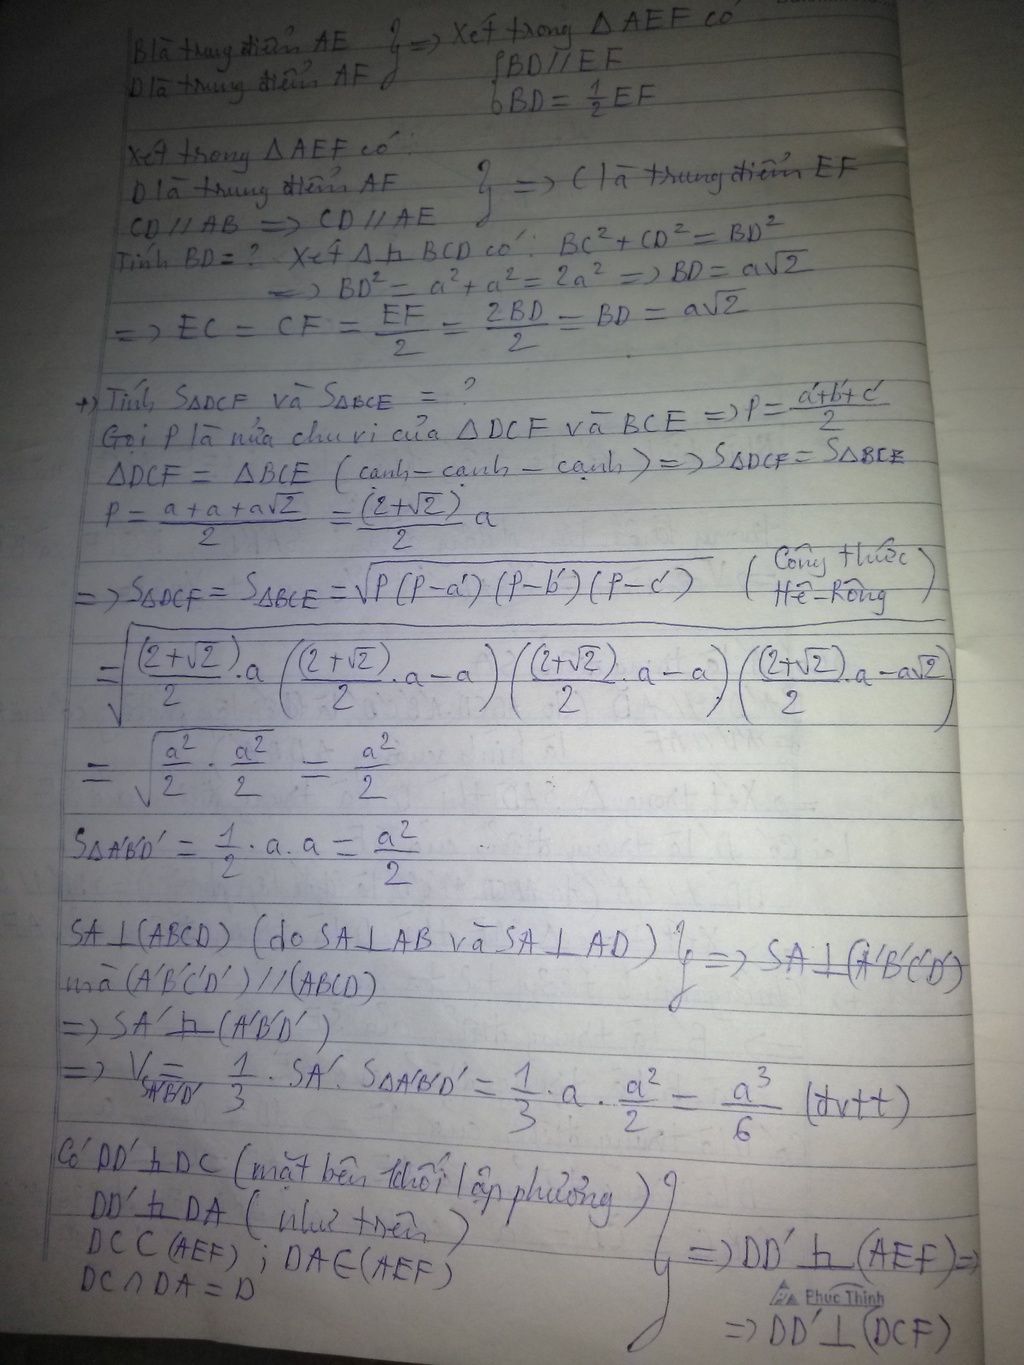 B là trung điểm AE } => Xét trong ΔAEF có
D là trung điểm AF { BD // EF
BD = 1/2 EF
Xét trong ΔAEF có:
D là trung điểm AF } => C là trung điểm EF
CD // AB => CD // AE
Tính BD = ? Xét Δ ⊥ BCD có: BC² + CD² = BD²
=> BD² = a² + a² = 2a² => BD = a√2
=> EC = CF = EF/2 = 2BD/2 = BD = a√2
+) Tính SΔDCF và SΔBCE = ?
Gọi P là nửa chu vi của ΔDCF và BCE => P = (a'+b'+c')/2
ΔDCF = ΔBCE (cạnh – cạnh – cạnh) => SΔDCF = SΔBCE
P = (a + a + a√2)/2 = (2+√2)/2 a
=> SΔDCF = SΔBCE = √(P(P–a')(P–b')(P–c')) (Công thức Hê-Rông)
= √((2+√2)/2 . a ((2+√2)/2 . a – a) ((2+√2)/2 . a – a) ((2+√2)/2 . a – a√2))
= √(a²/2 . a²/2) = a²/2
SΔA'B'D' = 1/2 . a . a = a²/2
SA ⊥ (ABCD) (do SA ⊥ AB và SA ⊥ AD) } => SA ⊥ (A'B'C'D')
mà (A'B'C'D') // (ABCD)
=> SA' ⊥ (A'B'D')
=> V SA'B'D' = 1/3 . SA' . SΔA'B'D' = 1/3 . a . a²/2 = a³/6 (đvtt)
Có DD' ⊥ DC (mặt bên khối lập phương)
DD' ⊥ DA (như trên)
DC ⊂ (AEF) ; DA ∈ (AEF) } => DD' ⊥ (AEF) =>
DC ∩ DA = D
Phúc Thịnh
=> DD' ⊥ (DCF)